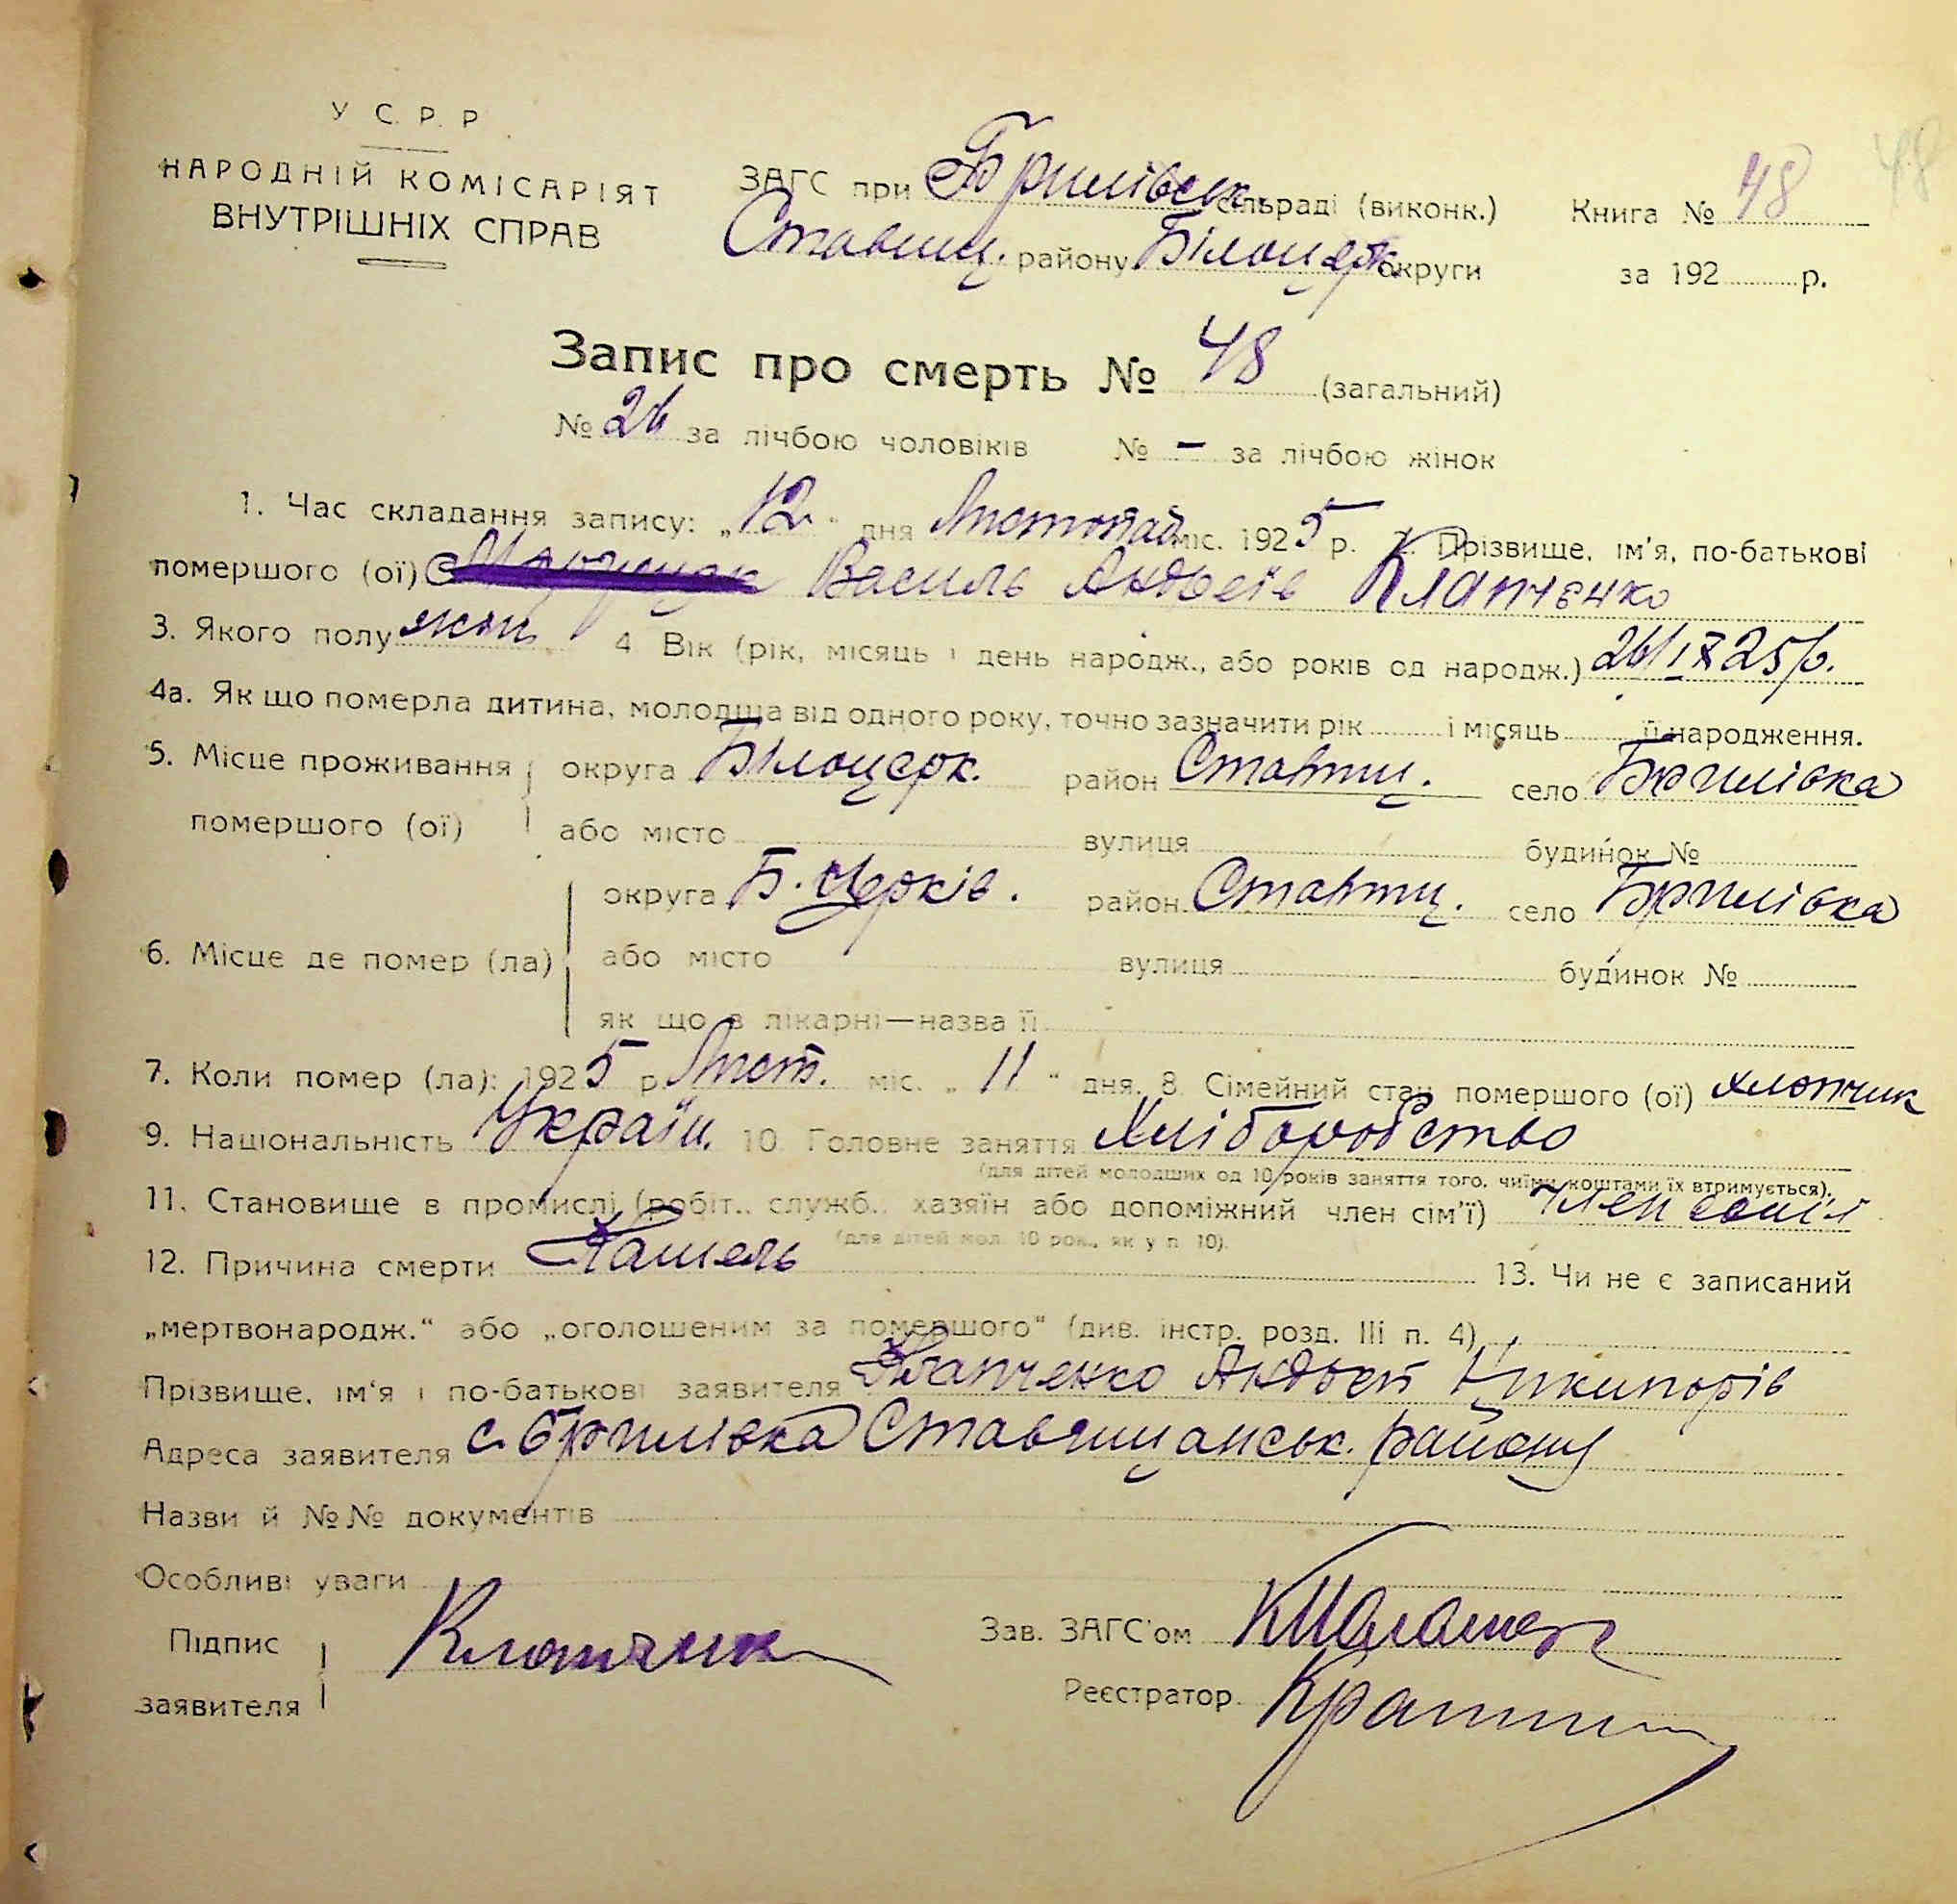 У С. Р. Р.
НАРОДНІЙ КОМІСАРІЯТ
ВНУТРІШНІХ СПРАВ
ЗАГС при Брилівськ. сільраді (виконк.)
Ставищ. району Білоцерк. округи
Книга № 48
48
за 192 р.
Запис про смерть № 48 (загальний)
№ 26 за лічбою чоловіків № – за лічбою жінок
1. Час складання запису: „12" дня Листопад міс. 1925 р. 2. Прізвище, ім'я, по-батькові
помершого (ої) Василь Андреїв Клапченко
3. Якого полу 4. Вік (рік, місяць і день народж., або років од народж.) 26/IX 25 р.
4а. Як що померла дитина, молодща від одного року, точно зазначити рік і місяць її народження.
5. Місце проживання помершого (ої) округа Білоцерк. район Ставищ. село Брилівка
або місто вулиця будинок №
6. Місце де помер (ла) округа Б. Церків. район Ставищ. село Брилівка
або місто вулиця будинок №
як що в лікарні—назва її
7. Коли помер (ла): 1925 р. Лист. міс. „11" дня. 8. Сімейний стан помершого (ої) хлопчик
9. Національність Україн. 10. Головне заняття Хліборобство
(для дітей молодших од 10 років заняття того, чиїми коштами їх втримується).
11. Становище в промислі (робіт., служб., хазяїн або допоміжний член сім'ї) член сем'ї
(для дітей мол. 10 рок., як у п. 10).
12. Причина смерти Кашель 13. Чи не є записаний
„мертвонародж." або „оголошеним за помершого" (див. інстр. розд. III п. 4)
Прізвище, ім'я і по-батькові заявителя Клапченко Андрей Никипорів
Адреса заявителя с. Брилівка Ставищанськ. району
Назви й №№ документів
Особливі уваги
Підпис заявителя Клапченк
Зав. ЗАГС'ом
Реєстратор